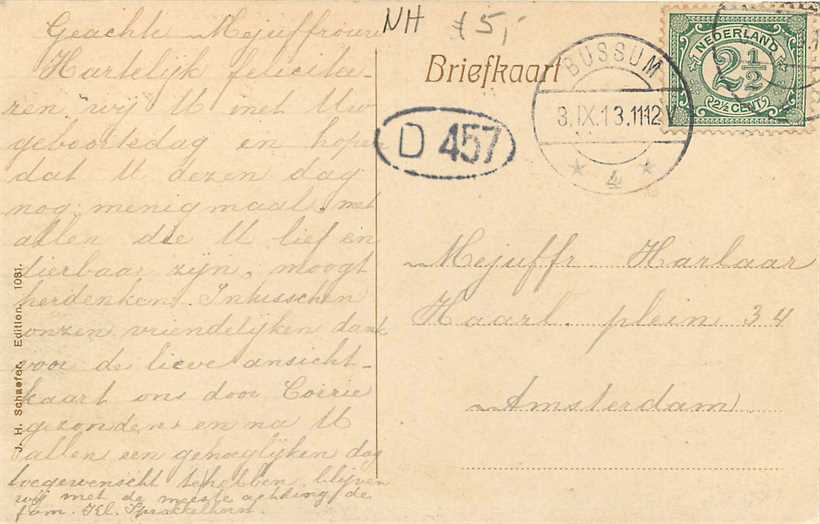 NH
£5,-
Briefkaart
BUSSUM
8.IX.13.1112 V
4
NEDERLAND
2½
2½ CENT
D 457
Geachte Mejuffrouw
Hartelijk felicitee-
ren wij U met Uw
geboortedag en hopen
dat U dezen dag
nog menigmaal met
allen die U lief en
dierbaar zijn, moogt
herdenken. Intusschen
onzen vriendelijken dank
voor de lieve ansicht-
kaart ons door Corrie
gezonden en na U
allen een genoeglijken dag
toegewenscht te hebben blijven
wij met de meeste achting de
fam.
Mejuffr. Harlaar
Haarl. plein 34
Amsterdam
J. H. Schaefer, Edition. 1081.